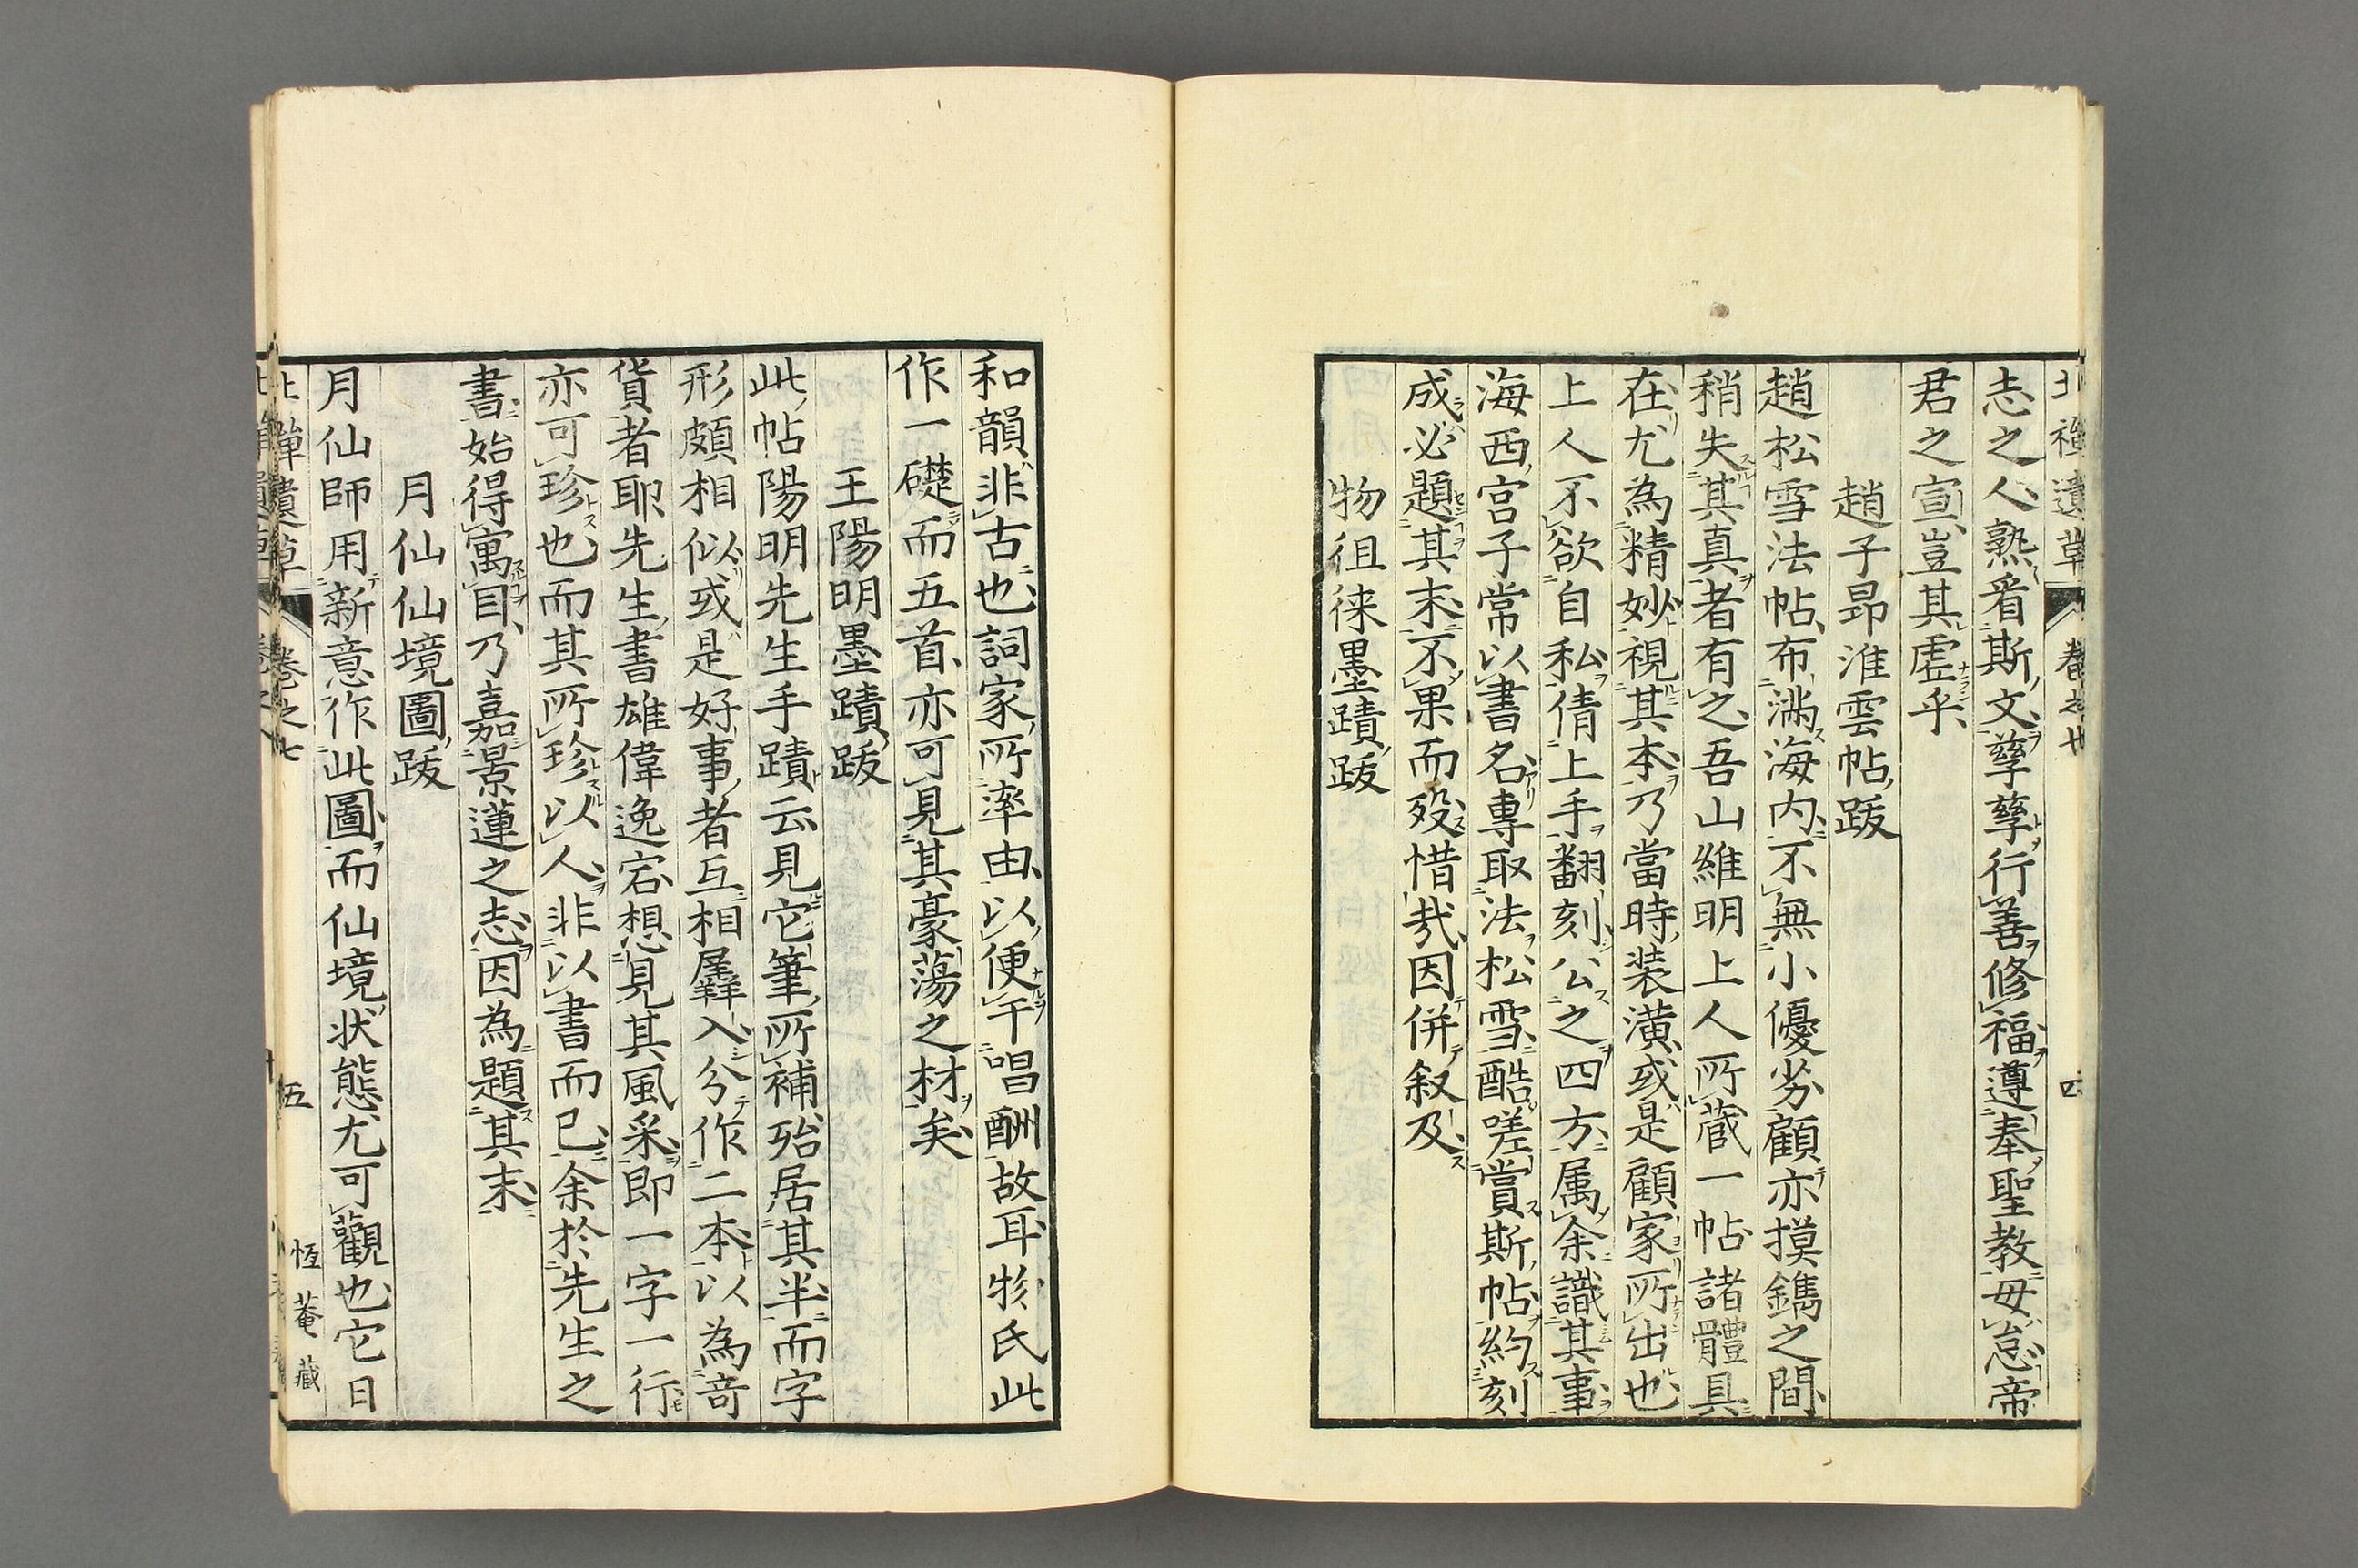 北禅遺草 卷之七 四
志之人熟看斯文孳孳行善修福遵奉聖教毋怠帝
君之宣豈其虚乎
趙子昂淮雲帖跋
趙松雪法帖布満海内不無小優劣顧亦摸鐫之間
稍失其真者有之吾山維明上人所蔵一帖諸體具
在尤為精妙視其本乃當時装潢或是顧家所出也
上人不欲自私倩上手翻刻公之四方属余識其事
海西宮子常以書名專取法松雪酷嗟賞斯帖約刻
成必題其末不果而歿惜哉因併叙及
物徂徠墨蹟跋
和韻非古也詞家所率由以便于唱酬故耳物氏此
作一礎而五首亦可見其豪蕩之材矣
王陽明墨蹟跋
此帖陽明先生手蹟云見它筆所補殆居其半而字
形頗相似或是好事者互相羼入分作二本以為奇
貨者耶先生書雄偉逸宕想見其風采即一字一行
亦可珍也而其所珍以人非以書而已余於先生之
書始得寓目乃嘉景蓮之志因為題其末
月仙仙境圖跋
月仙師用新意作此圖而仙境状態尤可觀也它日
北禅遺草 卷之七 五 恆菴藏